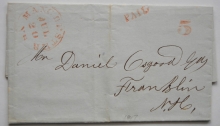 PAID
5
Mr Daniel Osgood Esq
Franklin
N.H.